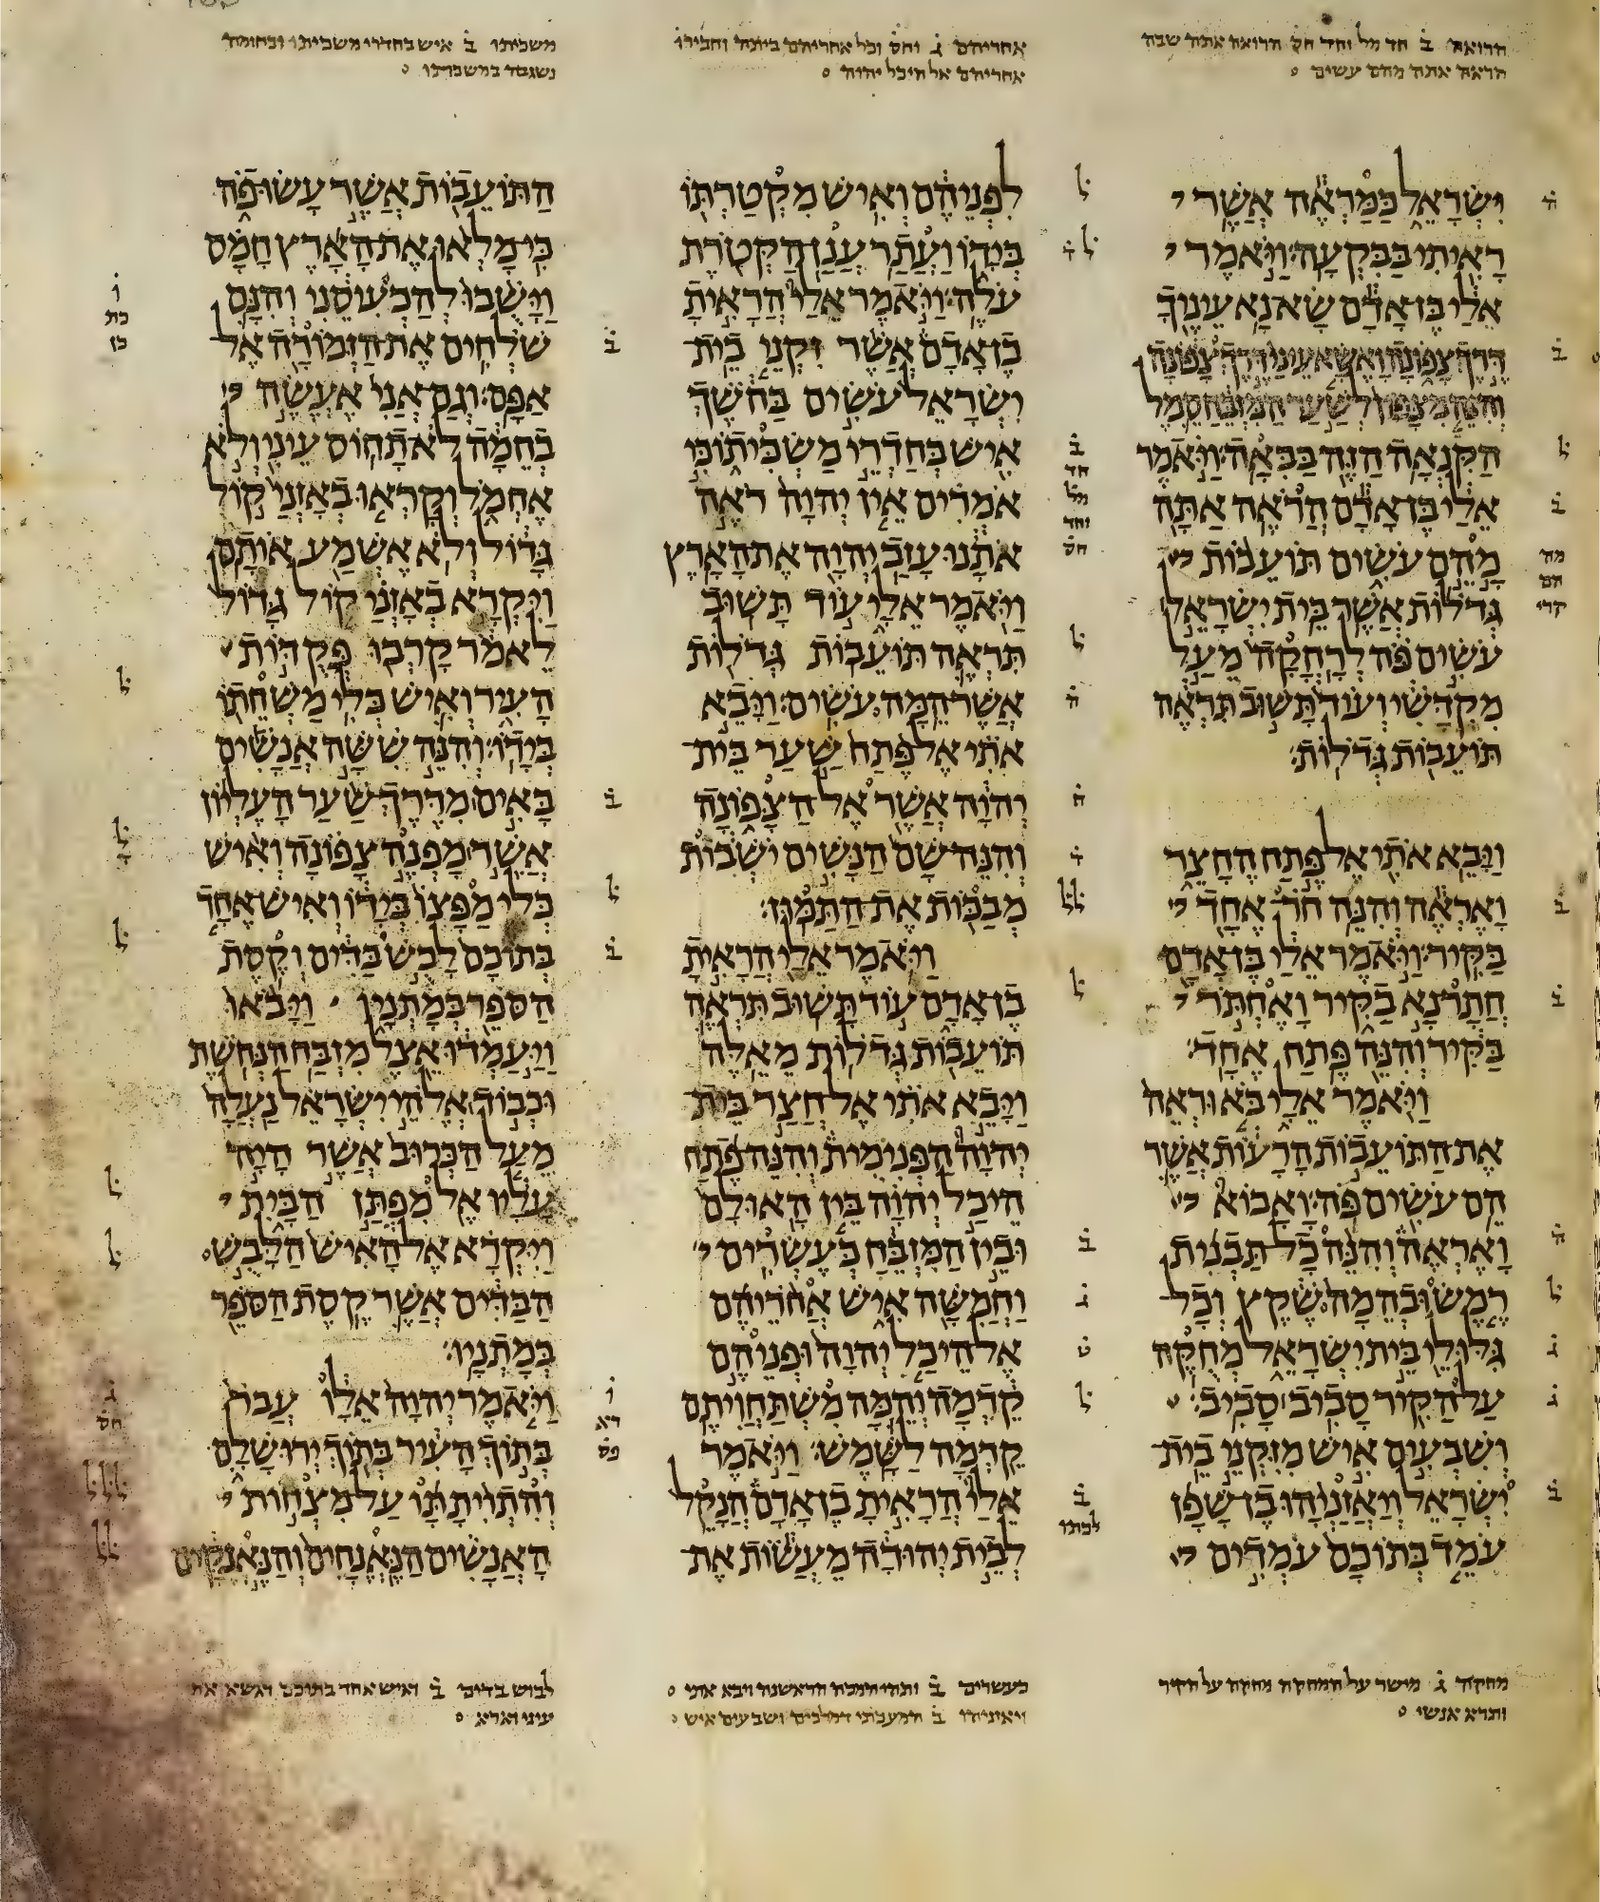 הרואה ב̇ חד מל וחד חס̇ הרואה אתה שבה
הראה אתה מהם עשים ○
אחריהם ג̇ וחס̇ וכל אחריהם ביתה וחבירו
אחריהם אל היכל יהוה ○
משכיתו ב̇ איש בחדרי משכיתו וכחומה
נשגבה במשכיתו ○
יִשְׂרָאֵל כַּמַּרְאֶה אֲשֶׁר
רָאִיתִי בַּבִּקְעָה׃ וַיֹּאמֶר
אֵלַי בֶּן־אָדָם שָׂא־נָא עֵינֶיךָ
דֶּרֶךְ צָפוֹנָה וָאֶשָּׂא עֵינַי דֶּרֶךְ צָפוֹנָה
וְהִנֵּה מִצָּפוֹן לְשַׁעַר הַמִּזְבֵּחַ סֵמֶל
הַקִּנְאָה הַזֶּה בַּבִּאָה׃ וַיֹּאמֶר
אֵלַי בֶּן־אָדָם הֲרֹאֶה אַתָּה
מָהֵם עֹשִׂים תּוֹעֵבוֹת
גְּדֹלוֹת אֲשֶׁר בֵּית־יִשְׂרָאֵל
עֹשִׂים פֹּה לְרָחֳקָה מֵעַל
מִקְדָּשִׁי וְעוֹד תָּשׁוּב תִּרְאֶה
תּוֹעֵבוֹת גְּדֹלוֹת׃
וַיָּבֵא אֹתִי אֶל־פֶּתַח הֶחָצֵר
וָאֶרְאֶה וְהִנֵּה חֹר־אֶחָד
בַּקִּיר׃ וַיֹּאמֶר אֵלַי בֶּן־אָדָם
חֲתָר־נָא בַקִּיר וָאֶחְתֹּר
בַּקִּיר וְהִנֵּה פֶּתַח אֶחָד׃
וַיֹּאמֶר אֵלָי בֹּא וּרְאֵה
אֶת־הַתּוֹעֵבוֹת הָרָעוֹת אֲשֶׁר
הֵם עֹשִׂים פֹּה׃ וָאָבוֹא
וָאֶרְאֶה וְהִנֵּה כָל־תַּבְנִית
רֶמֶשׂ וּבְהֵמָה שֶׁקֶץ וְכָל־
גִּלּוּלֵי בֵּית יִשְׂרָאֵל מְחֻקֶּה
עַל־הַקִּיר סָבִיב סָבִיב׃
וְשִׁבְעִים אִישׁ מִזִּקְנֵי בֵית־
יִשְׂרָאֵל וְיַאֲזַנְיָהוּ בֶן־שָׁפָן
עֹמֵד בְּתוֹכָם עֹמְדִים
לִפְנֵיהֶם וְאִישׁ מִקְטַרְתּוֹ
בְּיָדוֹ וַעֲתַר עֲנַן־הַקְּטֹרֶת
עֹלֶה׃ וַיֹּאמֶר אֵלַי הֲרָאִיתָ
בֶן־אָדָם אֲשֶׁר זִקְנֵי בֵית־
יִשְׂרָאֵל עֹשִׂים בַּחֹשֶׁךְ
אִישׁ בְּחַדְרֵי מַשְׂכִּיתוֹ כִּי
אֹמְרִים אֵין יְהוָה רֹאֶה
אֹתָנוּ עָזַב יְהוָה אֶת־הָאָרֶץ
וַיֹּאמֶר אֵלָי עוֹד תָּשׁוּב
תִּרְאֶה תּוֹעֵבוֹת גְּדֹלוֹת
אֲשֶׁר־הֵמָּה עֹשִׂים׃ וַיָּבֵא
אֹתִי אֶל־פֶּתַח שַׁעַר בֵּית־
יְהוָה אֲשֶׁר אֶל־הַצָּפוֹנָה
וְהִנֵּה־שָׁם הַנָּשִׁים יֹשְׁבוֹת
מְבַכּוֹת אֶת־הַתַּמּוּז׃
וַיֹּאמֶר אֵלַי הֲרָאִיתָ
בֶן־אָדָם עוֹד תָּשׁוּב תִּרְאֶה
תּוֹעֵבוֹת גְּדֹלוֹת מֵאֵלֶּה
וַיָּבֵא אֹתִי אֶל־חֲצַר בֵּית־
יְהוָה הַפְּנִימִית וְהִנֵּה־פֶתַח
הֵיכַל יְהוָה בֵּין הָאוּלָם
וּבֵין הַמִּזְבֵּחַ כְּעֶשְׂרִים
וַחֲמִשָּׁה אִישׁ אֲחֹרֵיהֶם
אֶל־הֵיכַל יְהוָה וּפְנֵיהֶם
קֵדְמָה וְהֵמָּה מִשְׁתַּחֲוִיתֶם
קֵדְמָה לַשָּׁמֶשׁ׃ וַיֹּאמֶר
אֵלַי הֲרָאִיתָ בֶן־אָדָם הֲנָקֵל
לְבֵית יְהוּדָה מֵעֲשׂוֹת אֶת־
הַתּוֹעֵבוֹת אֲשֶׁר עָשׂוּ־פֹה
כִּי־מָלְאוּ אֶת־הָאָרֶץ חָמָס
וַיָּשֻׁבוּ לְהַכְעִיסֵנִי וְהִנָּם
שֹׁלְחִים אֶת־הַזְּמוֹרָה אֶל־
אַפָּם׃ וְגַם־אֲנִי אֶעֱשֶׂה
בְחֵמָה לֹא־תָחוֹס עֵינִי וְלֹא
אֶחְמֹל וְקָרְאוּ בְאָזְנַי קוֹל
גָּדוֹל וְלֹא אֶשְׁמַע אוֹתָם
וַיִּקְרָא בְאָזְנַי קוֹל גָּדוֹל
לֵאמֹר קָרְבוּ פְּקֻדּוֹת
הָעִיר וְאִישׁ כְּלִי מַשְׁחֵתוֹ
בְּיָדוֹ׃ וְהִנֵּה שִׁשָּׁה אֲנָשִׁים
בָּאִים מִדֶּרֶךְ־שַׁעַר הָעֶלְיוֹן
אֲשֶׁר מָפְנֶה צָפוֹנָה וְאִישׁ
כְּלִי מַפָּצוֹ בְּיָדוֹ וְאִישׁ־אֶחָד
בְּתוֹכָם לָבֻשׁ בַּדִּים וְקֶסֶת
הַסֹּפֵר בְּמָתְנָיו וַיָּבֹאוּ
וַיַּעַמְדוּ אֵצֶל מִזְבַּח הַנְּחֹשֶׁת
וּכְבוֹד אֱלֹהֵי יִשְׂרָאֵל נַעֲלָה
מֵעַל הַכְּרוּב אֲשֶׁר הָיָה
עָלָיו אֶל מִפְתַּן הַבָּיִת
וַיִּקְרָא אֶל־הָאִישׁ הַלָּבֻשׁ
הַבַּדִּים אֲשֶׁר קֶסֶת הַסֹּפֵר
בְּמָתְנָיו׃
וַיֹּאמֶר יְהוָה אֵלָיו עֲבֹר
בְּתוֹךְ הָעִיר בְּתוֹךְ יְרוּשָׁלִָם
וְהִתְוִיתָ תָּו עַל־מִצְחוֹת
הָאֲנָשִׁים הַנֶּאֱנָחִים וְהַנֶּאֱנָקִים
מחקה ג̇ מישר על המחקה מחקה על הקיר
ותרא אנשי ○
כעשרים ב̇ ותהי המכה הראשנה ויבא אתי ○
ויאזניהו ב̇ המעכתי דמלכים ושבעים איש ○
לבוש בדים ב̇ ואיש אחד בתוכם ואשא את
עיני וארא ○